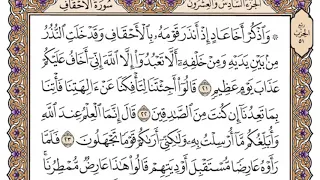 الجزء السادس والعشرون سورة الأحقاف
۞ وَٱذْكُرْ أَخَا عَادٍ إِذْ أَنذَرَ قَوْمَهُۥ بِٱلْأَحْقَافِ وَقَدْ خَلَتِ ٱلنُّذُرُ
مِنۢ بَيْنِ يَدَيْهِ وَمِنْ خَلْفِهِۦٓ أَلَّا تَعْبُدُوٓا۟ إِلَّا ٱللَّهَ إِنِّىٓ أَخَافُ عَلَيْكُمْ
عَذَابَ يَوْمٍ عَظِيمٍ ٢١ قَالُوٓا۟ أَجِئْتَنَا لِتَأْفِكَنَا عَنْ ءَالِهَتِنَا فَأْتِنَا
بِمَا تَعِدُنَآ إِن كُنتَ مِنَ ٱلصَّـٰدِقِينَ ٢٢ قَالَ إِنَّمَا ٱلْعِلْمُ عِندَ ٱللَّهِ
وَأُبَلِّغُكُم مَّآ أُرْسِلْتُ بِهِۦ وَلَـٰكِنِّىٓ أَرَىٰكُمْ قَوْمًا تَجْهَلُونَ ٢٣ فَلَمَّا
رَأَوْهُ عَارِضًا مُّسْتَقْبِلَ أَوْدِيَتِهِمْ قَالُوا۟ هَـٰذَا عَارِضٌ مُّمْطِرُنَا
ربع
الحزب
٥١